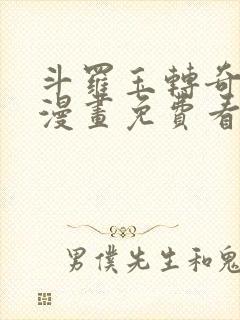 斗羅玉轉奇
漫畫免費看
男僕先生和鬼